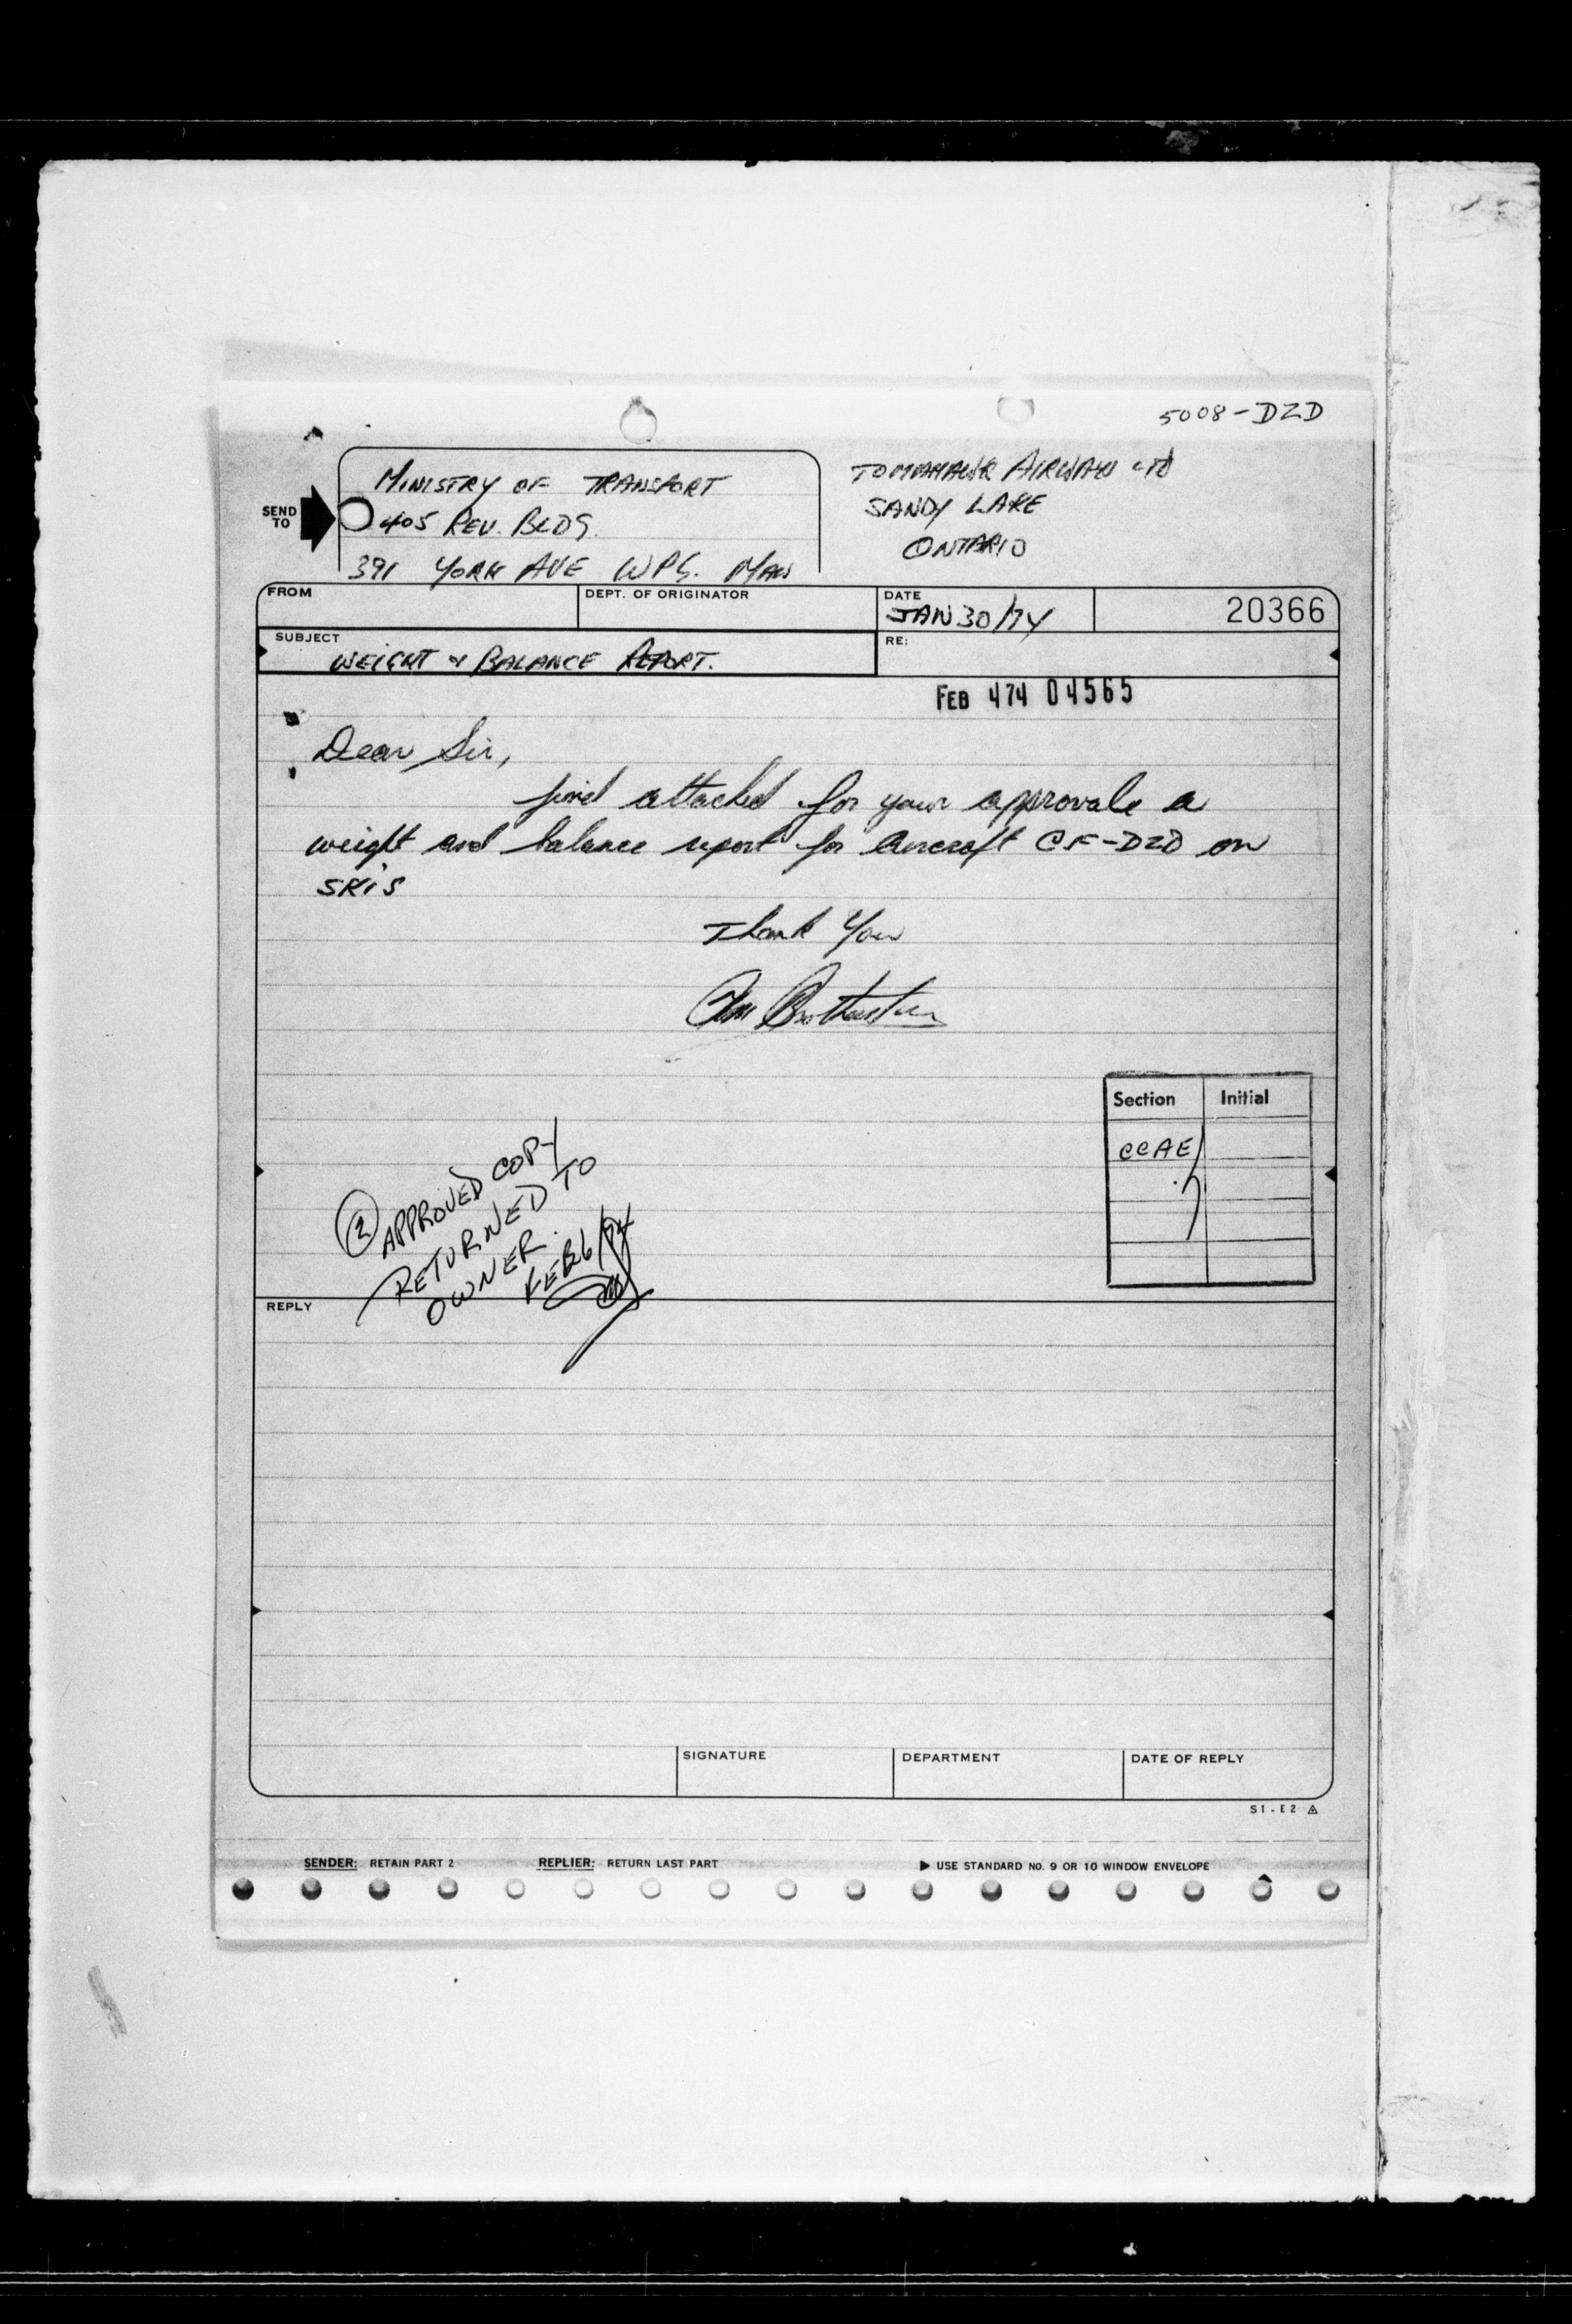 5008-DZD
SEND TO
MINISTRY OF TRANSPORT
405 REV. BLDG.
391 YORK AVE WPG. MAN
TOMAHAWK AIRWAYS LTD
SANDY LAKE
ONTARIO
FROM
DEPT. OF ORIGINATOR
DATE
JAN 30/74
20366
SUBJECT
WEIGHT & BALANCE REPORT.
RE:
FEB 474 04565
Dear Sir,
find attached for your approvale a
weight and balance report for aircraft CF-DZD on
SKIS
Thank You
Section Initial
CCAE
2 APPROVED COPY
RETURNED TO
OWNER.
FEB 6/74
REPLY
SIGNATURE
DEPARTMENT
DATE OF REPLY
S1-E2
SENDER: RETAIN PART 2
REPLIER: RETURN LAST PART
USE STANDARD NO. 9 OR 10 WINDOW ENVELOPE